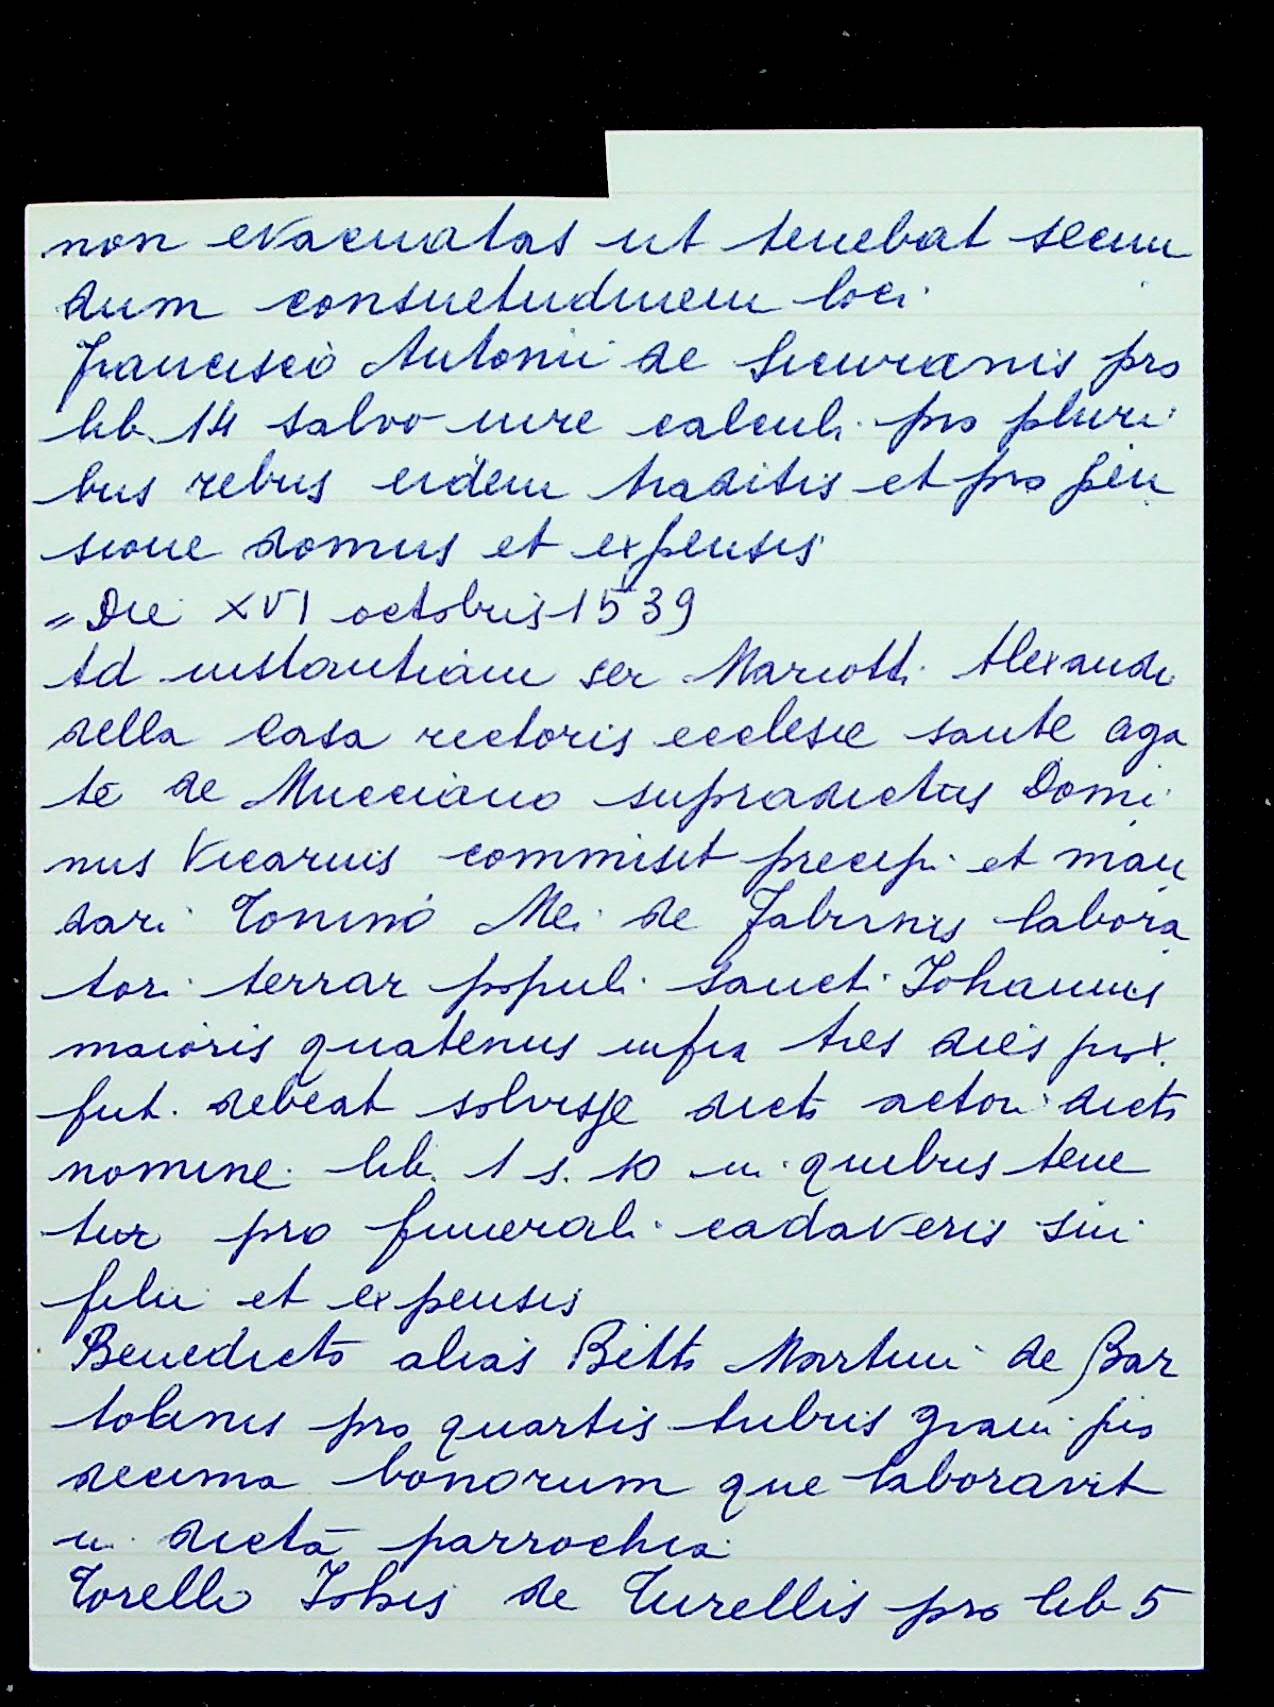 non evacuatas ut tenebat secun
dum consuetudinem loci
Francisco Antonii de Securanis pro
lib. 14 salvo iure calculi pro pluri
bus rebus eidem traditis et pro pen
sione domus et expensis
"Die XVI octobris 1539
Ad instantiam ser Mariotti Alexandri
della Casa rectoris ecclesie sante aga
te de Mucciano supradictus Domi
nus Vicarius commisit precipi et man
dari Tonino Mei de Fabrinis labora
tori terrar populi sancti Johannis
maioris quatenus infra tres dies prox.
fut. debeat solvisse dicto actori dicto
nomine lib. 1 s. 10 in quibus tene
tur pro funerali cadaveris sui
filii et expensis
Benedicto alias Bitto Martini de Bar
tolinis pro quartis tribus grani pro
decima bonorum que laboravit
in dicta parrochia
Torello Johis de Turellis pro lib 5